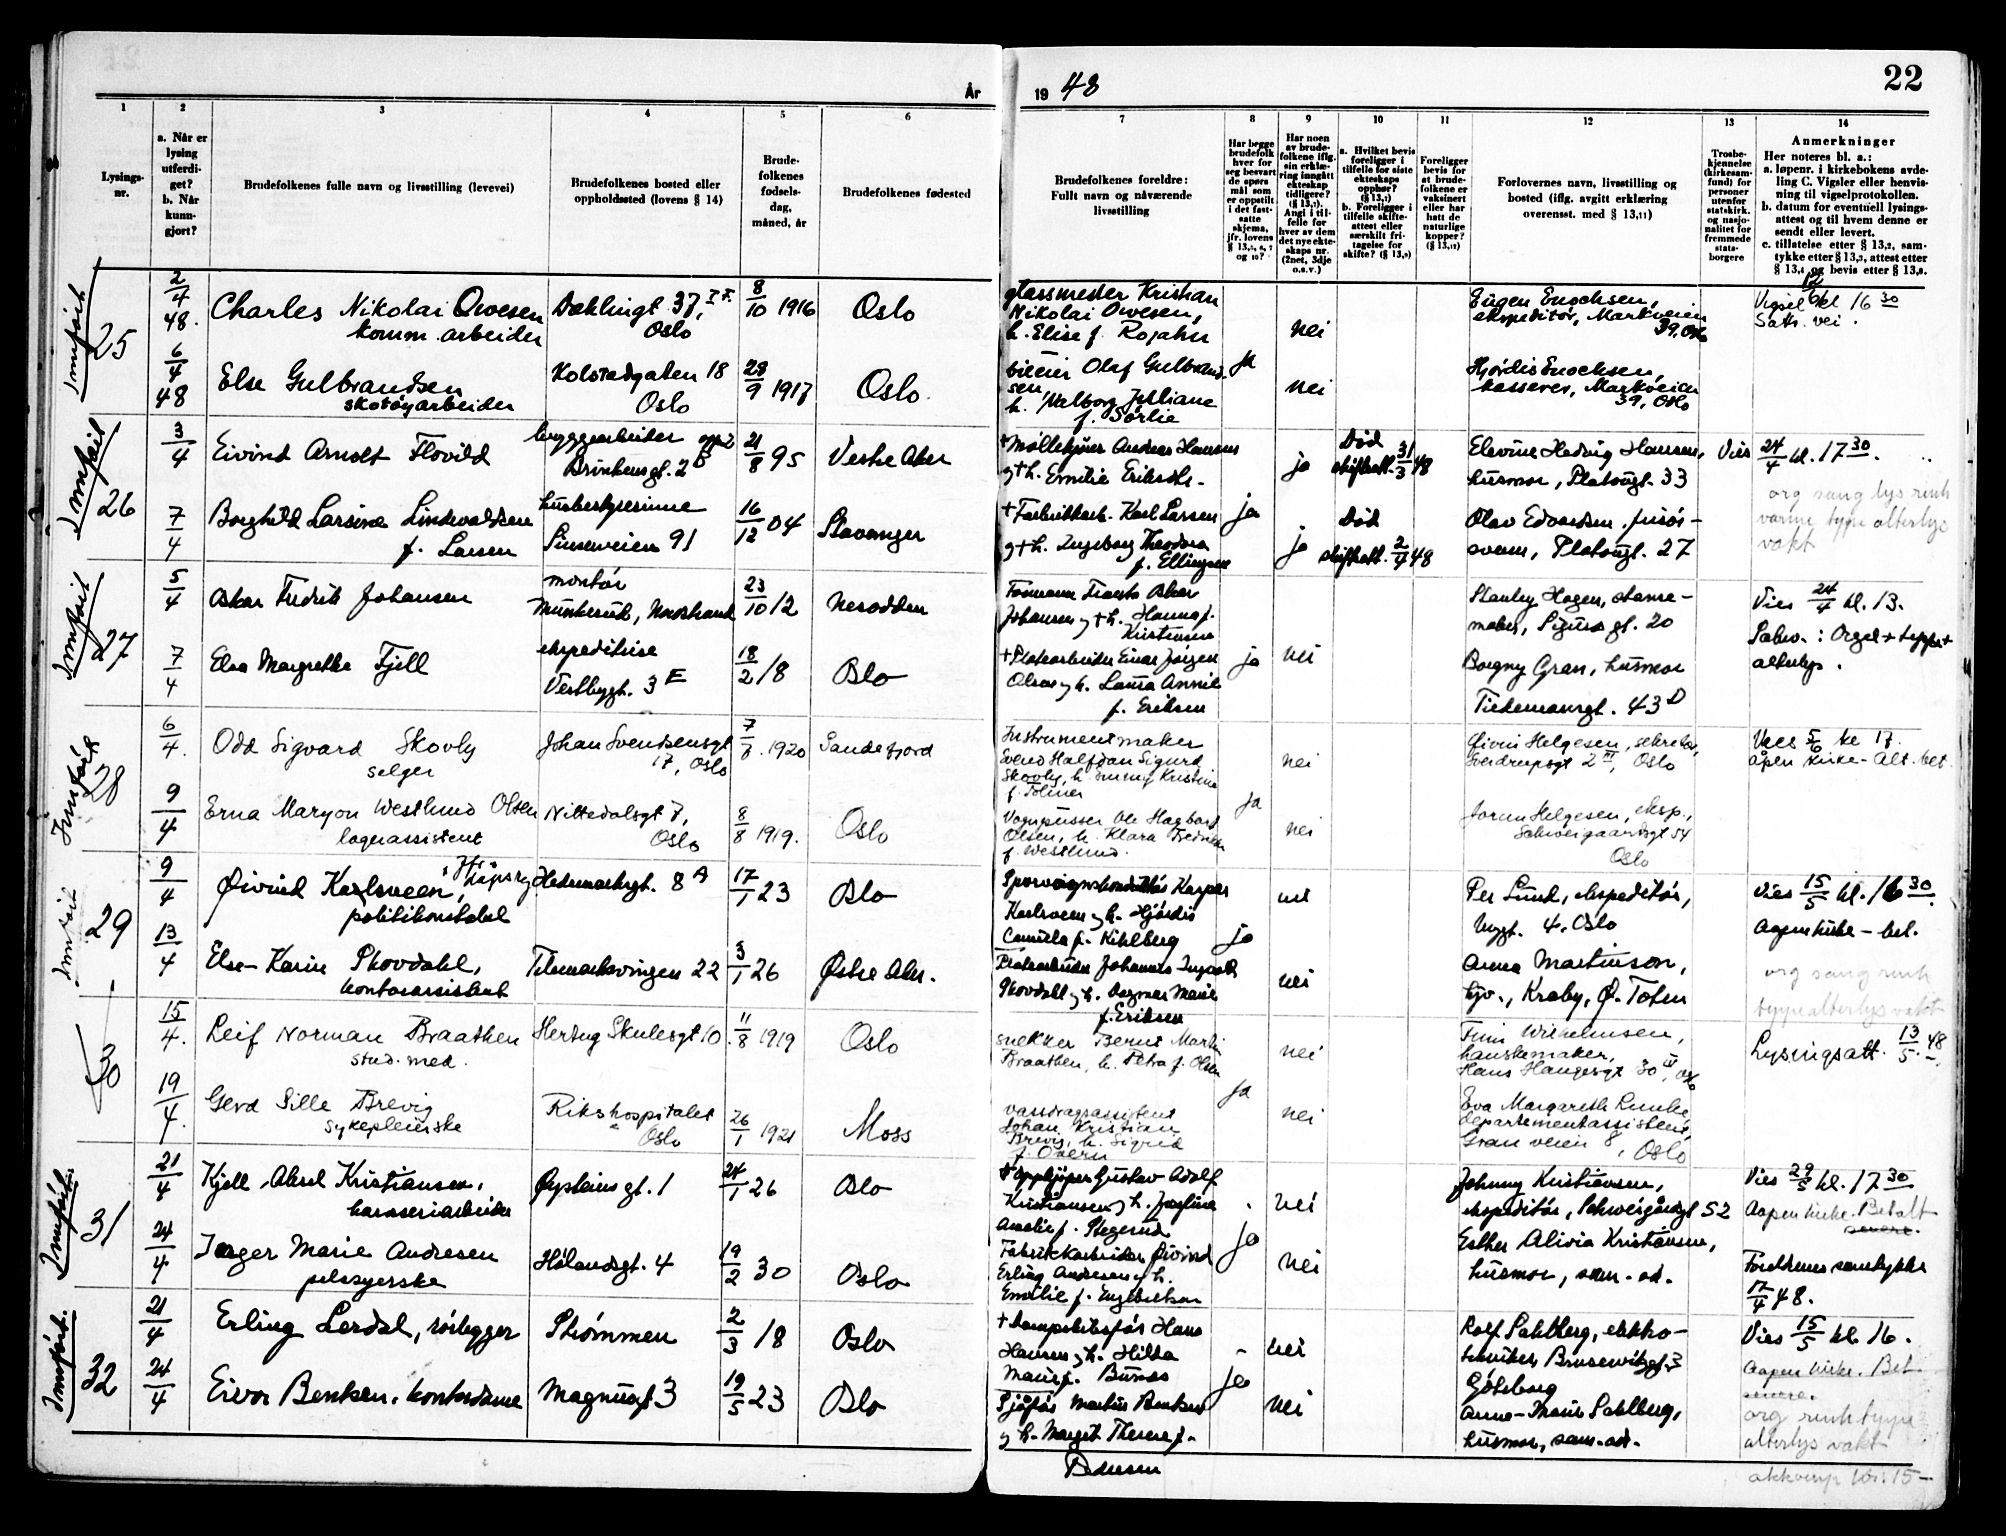 År
19 48
22
1
2
3
4
5
6
7
8
9
10
11
12
13
14
Lysings-
nr.
a. Når er
lysing
utferdi-
get?
b. Når
kunn-
gjort?
Brudefolkenes fulle navn og livsstilling (levevei)
Brudefolkenes bosted eller
oppholdssted (lovens § 14)
Brude-
folkenes
fødsels-
dag,
måned, år
Brudefolkenes fødested
Brudefolkenes foreldre:
Fullt navn og nåværende
livsstilling
Har begge
brudefolk
hver for
seg besvart
de spørs
mål som
er oppstilt
i det fast-
satte
skjema,
jfr. lovens
og 10?
Har noen
av brude-
folkene iflg.
sin erklæ-
ring inngått
ekteskap
tidligere?
Angi i til-
felle for
hver av dem
det nye ekte-
skaps nr.
(2net, 3dje
o.s.v.)
a. Hvilket bevis
foreligger i
tilfelle for siste
ekteskaps
opphør?
b. Foreligger i
tilfelle skifte-
attest eller
særskilt fri-
tagelse for
skifte?
Foreligger
bevis for
at brude-
folkene er
vaksinert
eller har
hatt de
naturlige
kopper?
Forlovernes navn, livsstilling og
bosted (iflg. avgitt erklæring
overensst. med § 13,11)
Trosbe-
kjennelse
(kirkesam-
fund) for
personer
utenfor
statskirk.
og nasjo-
nalitet for
fremmede
stats-
borgere
Anmerkninger
Her noteres bl. a.:
a. løpenr. i kirkebokens avde-
ling C. Vigsler eller henvis-
ning til vigselprotokollen.
b. datum for eventuell lysings-
attest og til hvem denne er
sendt eller levert.
c. tillatelse etter § 13,2, sam-
tykke etter § 13,3, attest etter
§ 13,4 og bevis etter § 13,8.
Innført
25
2/4 48.
Charles Nikolai Owesen
komm. arbeider
Dælingt 37,
Oslo
8/10 1916
Oslo
glassmester Kristian
Nikolai Owesen,
h. Elise f. Rojahn
nei
Eugen Enochsen,
ekspeditør, Markveien
39, Oslo
Vigsel 12/6 kl 16 30
6/4 48
Else Gulbrandsen
skotøyarbeider
Kolstadgaten 18
Oslo
28/9 1917
Oslo
Olaf Gulbrand-
sen,
h. Valborg Juliane
f. Sørlie
ja
nei
Hjørdis Enochsen,
kasserer, Markveien
39, Oslo
Innført
26
3/4
Eivind Arndt Flovild
byggearbeider
21/8 95
Vestre Aker
Andreas Hansen
og + h. Emilie
ja
Død
skifteatt. 31/3 48
Elevine Hedvig Hansen,
husmor, Platougt. 33
Vies 24/4 kl. 17 30.
7/4
Borghild Larsine Lindevaldsen
f. Larsen
husbestyrerinne
Sinsenveien 91
16/12 04
Stavanger
+ Fabrikkarb. Karl Larsen
og + h. Ingeborg Theodora
f. Ellingsen
ja
ja
Død
skifteatt. 2/4 48
Olav Edvardsen, frisør-
svenn, Platougt. 27
org sang lys rink
varme teppe alterlys
vakt
Innført
27
5/4
Oskar Fredrik Johansen
montør
23/10 12
Nesodden
Johansen og + h. Hanna f.
Kristiansen
Stanley Hagen,
Sigurds gt. 20
Vies 24/4 kl. 13.
7/4
Elsa Margrethe Fjell
ekspeditrise
Vestbygt. 3 E
18/2 18
Oslo
+ Platearbeider Einar Jørgen
Olsen og h. Laura Annie
f. Eriksen
ja
nei
Borgny Gran, husmor
Tidemansgt. 43 D
Orgel + teppe +
alterlys.
Innført
28
6/4.
Odd Sigvard Skovly
selger
Johan Svendsensgt
17, Oslo
1920
Sandefjord
Instrumentmaker
Svend Halfdan Sigurd
Skovly, h. Jenny Kristine
nei
Øivin Helgesen, sekretær,
Sverdrupsgt 2 III, Oslo
Vies 5/6 kl 17.
åpen kirke - Alt. bet.
9/4
Erna Maryon Westlund Olsen
lagerassistent
Nittedalsgt 7,
Oslo
8/8 1919.
Oslo
Vognpusser Ole Hagbart
Olsen, h. Klara Fredrikke
f. Westlund.
ja
nei
Jorun Helgesen, eksp.,
Schweigaardsgt 54
Oslo
Innført
29
9/4
Øivind Karlsveen,
politikonstabel
Hedemarksgt. 8 A
17/1 23
Oslo
Sporvognskonduktør Kasper
Karlsveen og h. Hjørdis
Camilla f. Kihlberg
nei
Per Lund, ekspeditør,
4, Oslo
Vies 15/5 kl. 16 30.
Aapen kirke - bet.
13/4
Else-Karin Skovdahl,
kontorassistent
Telemarksvingen 22
3/1 26
Østre Aker.
Platearbeider Johannes Ingvald
Skovdahl og h. Dagmar Marie
f. Eriksen
ja
nei
Anna Martinson,
hjv., Kraby, Ø. Toten
org sang rink
teppe alterlys vakt
30
15/4.
Leif Norman Braathen
stud. med.
Hertug Skulesgt 10.
11/8 1919
Oslo
snekker Bernt Martin
Braathen, h. Petra f. Olsen
nei
Finn Wilhelmsen,
hanskemaker,
Hans Haugesgt 30 IV, Oslo
Lysingsatt. 13/5. 48
19/4.
Gerd Sille Brevig
sykepleierske
Rikshospitalet
Oslo
26/1 1921
Moss
vassdragsassistent
Johan Kristian
Brevig, h. Sigrid
ja
nei
Eva Margareth
departementassistent,
Granveien 8, Oslo
Innført
31
21/4
Kjell Aksel Kristiansen,
karosseriarbeider
Øysteins gt. 1
24/1 26
Oslo
Gustav Adolf
Kristiansen og h. Josefine
Amalie f. Stegerud
nei
Johnny Kristiansen,
ekspeditør, Schweigårdsgt 52
Vies 29/5 kl. 17 30
Aapen kirke. Betalt
24/4
Inger Marie Andresen
pelssyerske
Hølandsgt. 4
19/2 30
Oslo
Fabrikkarbeider Øivind
Erling Andresen og h.
Emilie f. Engebretsen
ja
nei
Esther Alivia Kristiansen,
husmor, sam. st.
Foreldrenes samtykke
17/4 48.
Innført.
32
21/4
Erling Lerdal, rørlegger
Strømmen
2/3 18
Oslo
Hans
Hansen og h. Hilda
Marie f. Bunes
nei
Rolf Sahlberg, elektro-
tekniker Brusewitzgt. 3
Göteborg
Vies 15/5 kl. 16.
Aapen kirke. Bet
24/4
Eivor Bentsen, kontordame
Magnusgt 3
19/5 23
Oslo
Sjåfør Martin Bentsen
og h. Margit Therese f.
Pedersen
ja
nei
Anna-Maria Sahlberg,
husmor, sam. st.
org rink teppe
alterlys vakt
akkomp kr. 15-